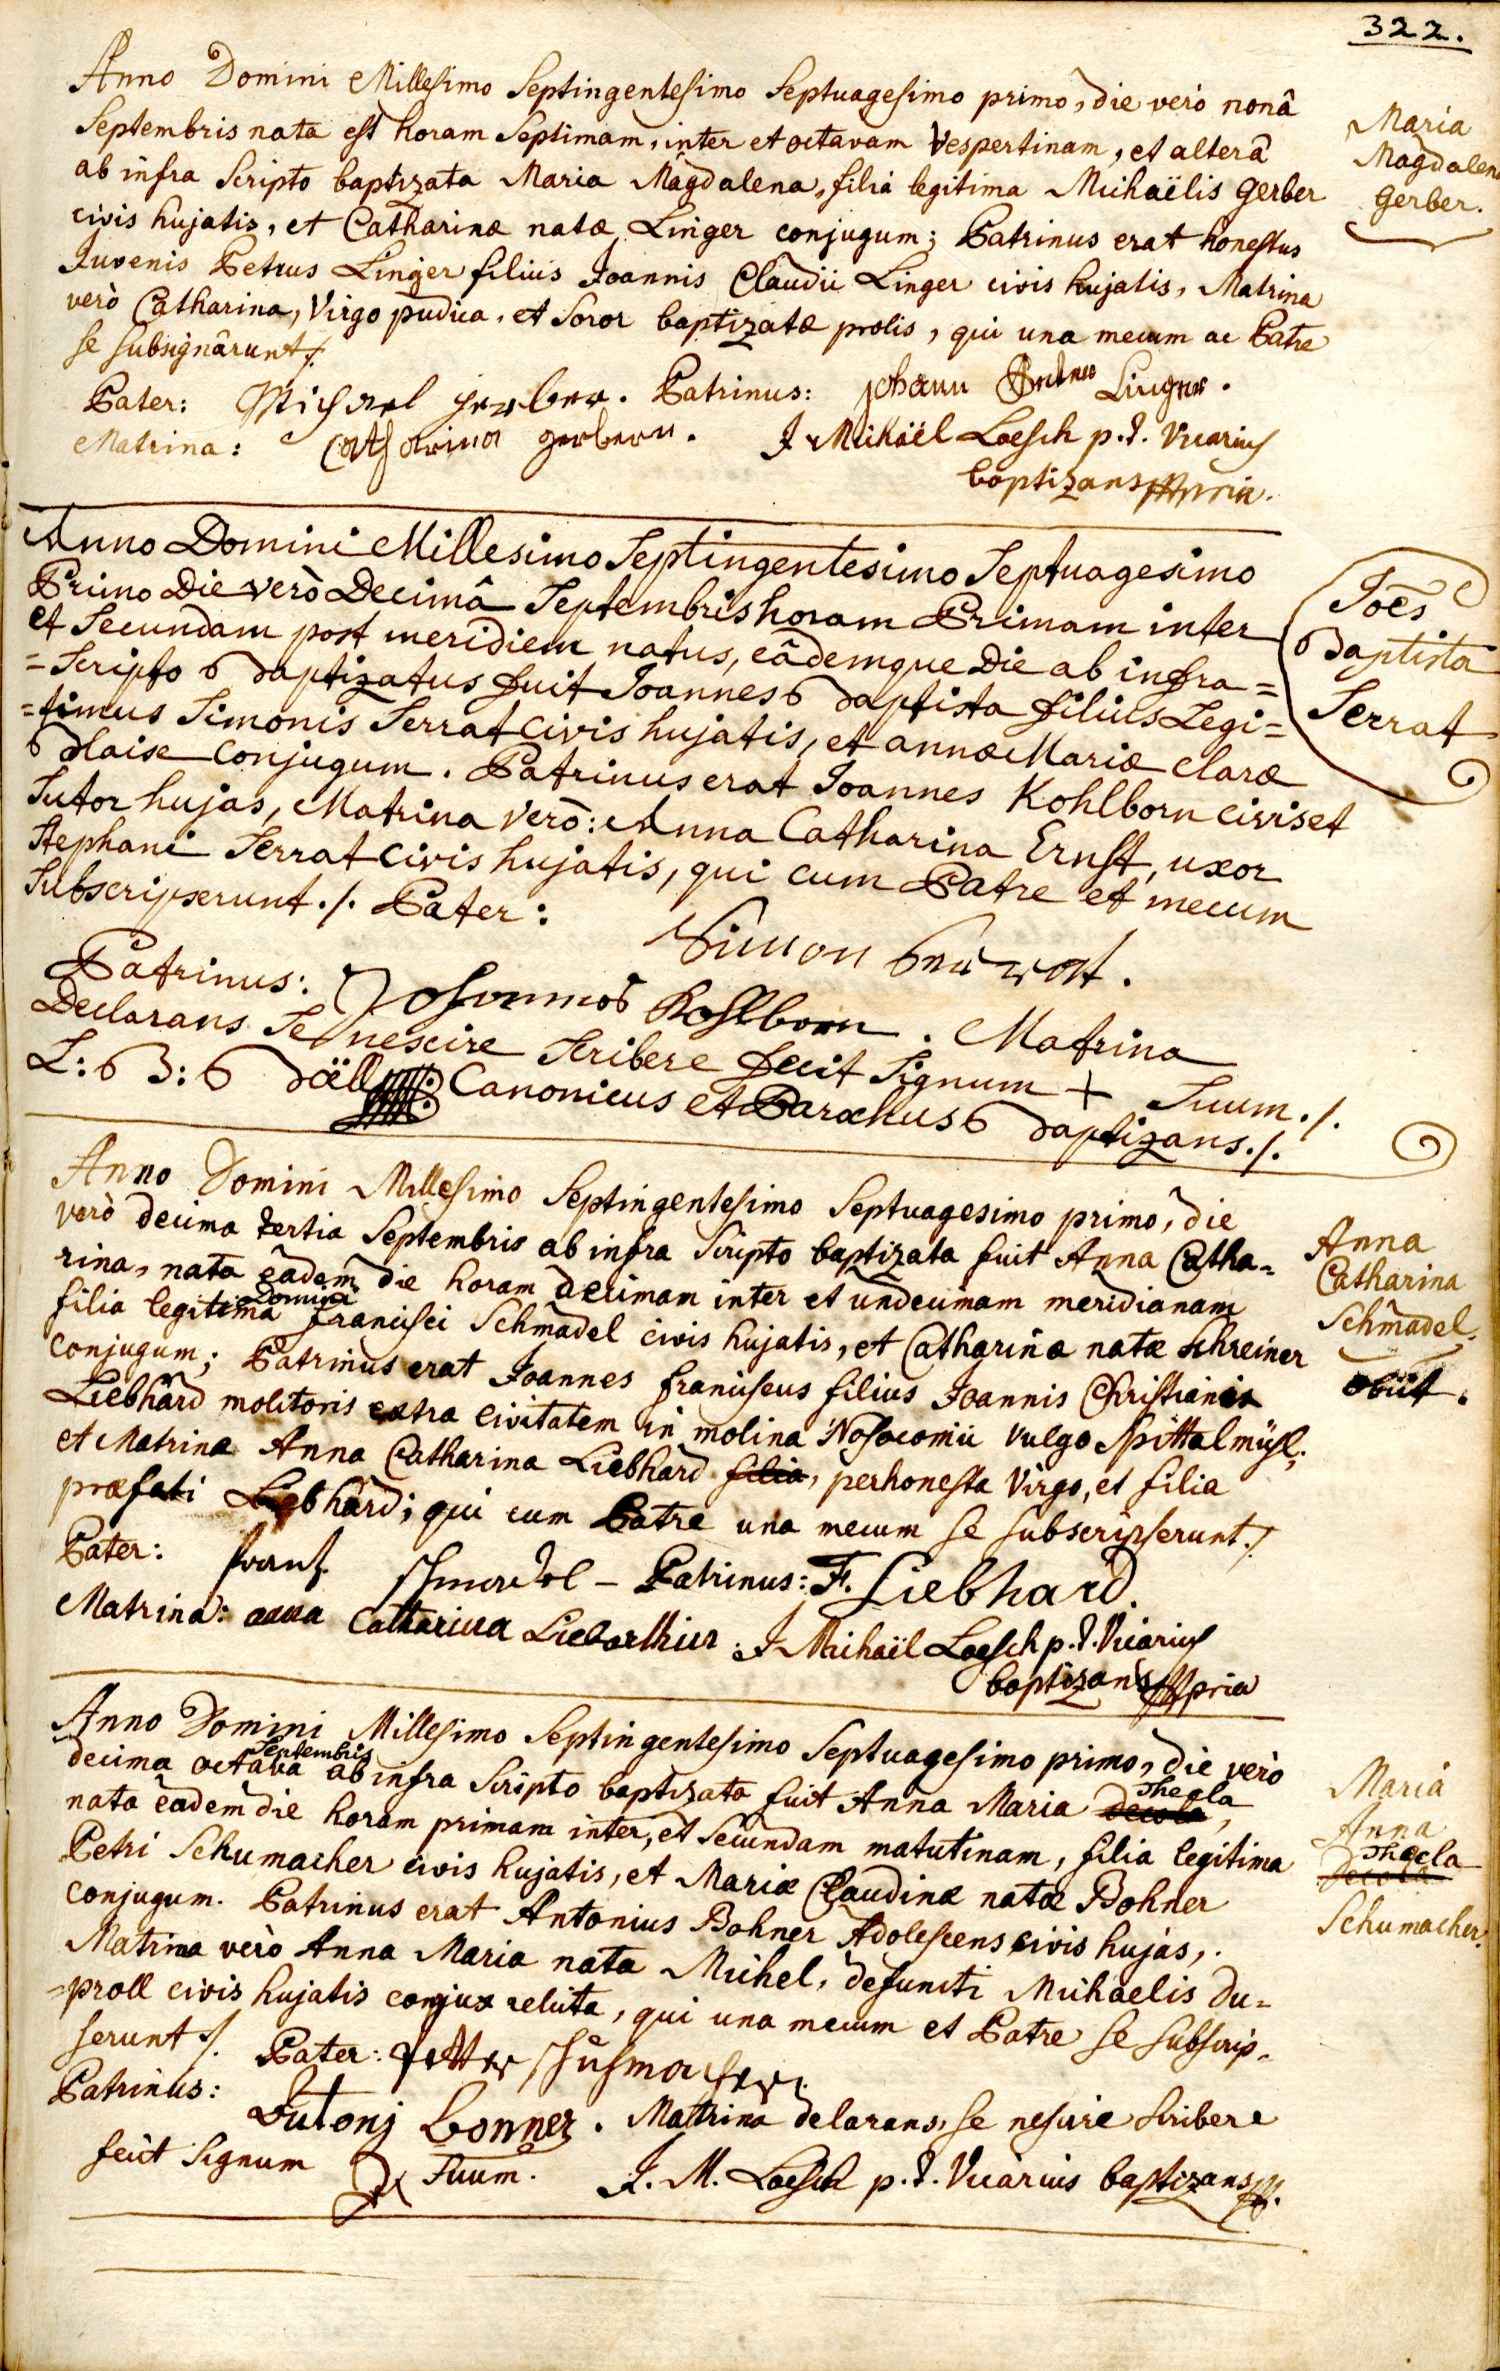 322.
Anno Domini Millesimo Septingentesimo Septuagesimo primo, die verò nonâ
Septembris nata est horam Septimam, inter et octavam Vespertinam, et alterâ
ab infra Scripto baptizata Maria Magdalena, filia legitima Michaëlis Gerber
civis hujatis, et Catharinæ natæ Linger conjugum; Patrinus erat honestus
Juvenis Petrus Linger filius Joannis Claudii Linger civis hujatis, Matrina
verò Catharina, Virgo pudica, et Soror baptizatæ prolis, qui una mecum ac Patre
se subsignârunt ./.
Pater: Michael gerber. Patrinus: Johann Linger.
Matrina: Catharina gerbern. J. Michaël Loesch p. t. Vicarius
baptizans mppria.
Maria
Magdalena
Gerber.
Anno Domini Millesimo Septingentesimo Septuagesimo
Primo Die verò Decimâ Septembris horam Primam inter
et Secundam post meridiem natus, eâdemque Die ab infra=
=Scripto Baptizatus fuit Joannes Baptista filius Legi=
=timus Simonis Serrat civis hujatis, et annæ Mariæ claræ
Blaise conjugum. Patrinus erat Joannes Kohlborn civis et
Sutor hujas, Matrina verò: Anna Catharina Ernst, uxor
Stephani Serrat civis hujatis, qui cum Patre et mecum
Subscripserunt ./. Pater: Simon Serrat.
Patrinus: Johannes Kohlborn. Matrina
Declarans Se nescire Scribere fecit Signum + Suum ./.
L: B: Böell Canonicus et Parochus Baptizans ./.
Joēs
Baptista
Serrat
Anno Domini Millesimo Septingentesimo Septuagesimo primo, die
verò decima tertia Septembris ab infra Scripto baptizata fuit Anna Catha-
rina, nata eâdem die horam decimam inter et undecimam meridianam
filia legitima Domini Francisci Schmadel civis hujatis, et Catharinæ natæ Schreiner
conjugum; Patrinus erat Joannes franciscus filius Joannis Christiani
Liebhard molitoris extra civitatem in molina Nosocomii vulgo Spittalmühl;
et Matrina Anna Catharina Liebhard filia, perhonesta Virgo, et filia
præfati Liebhard; qui cum Patre una mecum se subscripserunt ./.
Pater: frantz schmadel - Patrinus: F. Liebhard.
Matrina: anna Catharina Liebarthin. J. Michaël Loesch p. t. Vicarius
baptizans mppria
Anna
Catharina
Schmadel.
obiit.
Anno Domini Millesimo Septingentesimo Septuagesimo primo, die verò
decima octava Septembris ab infra Scripto baptizata fuit Anna Maria Decola Thecla,
nata eâdem die horam primam inter, et Secundam matutinam, filia legitima
Petri Schumacher civis hujatis, et Mariæ Claudinæ natæ Bohner
conjugum. Patrinus erat Antonius Bohner Adolescens civis hujas,
Matrina verò Anna Maria nata Michel, defuncti Michaelis Du=
=proll civis hujatis conjux relicta, qui una mecum et Patre se subscrip-
serunt ./. Pater: Petter schuhmacher.
Patrinus: Antonj Bonner. Matrina delarans, se nescire scribere
fecit Signum Suum. J. M. Loesch p. t. Vicarius baptizans mp.
Maria
Anna
Thecla
Decola
Schumacher.